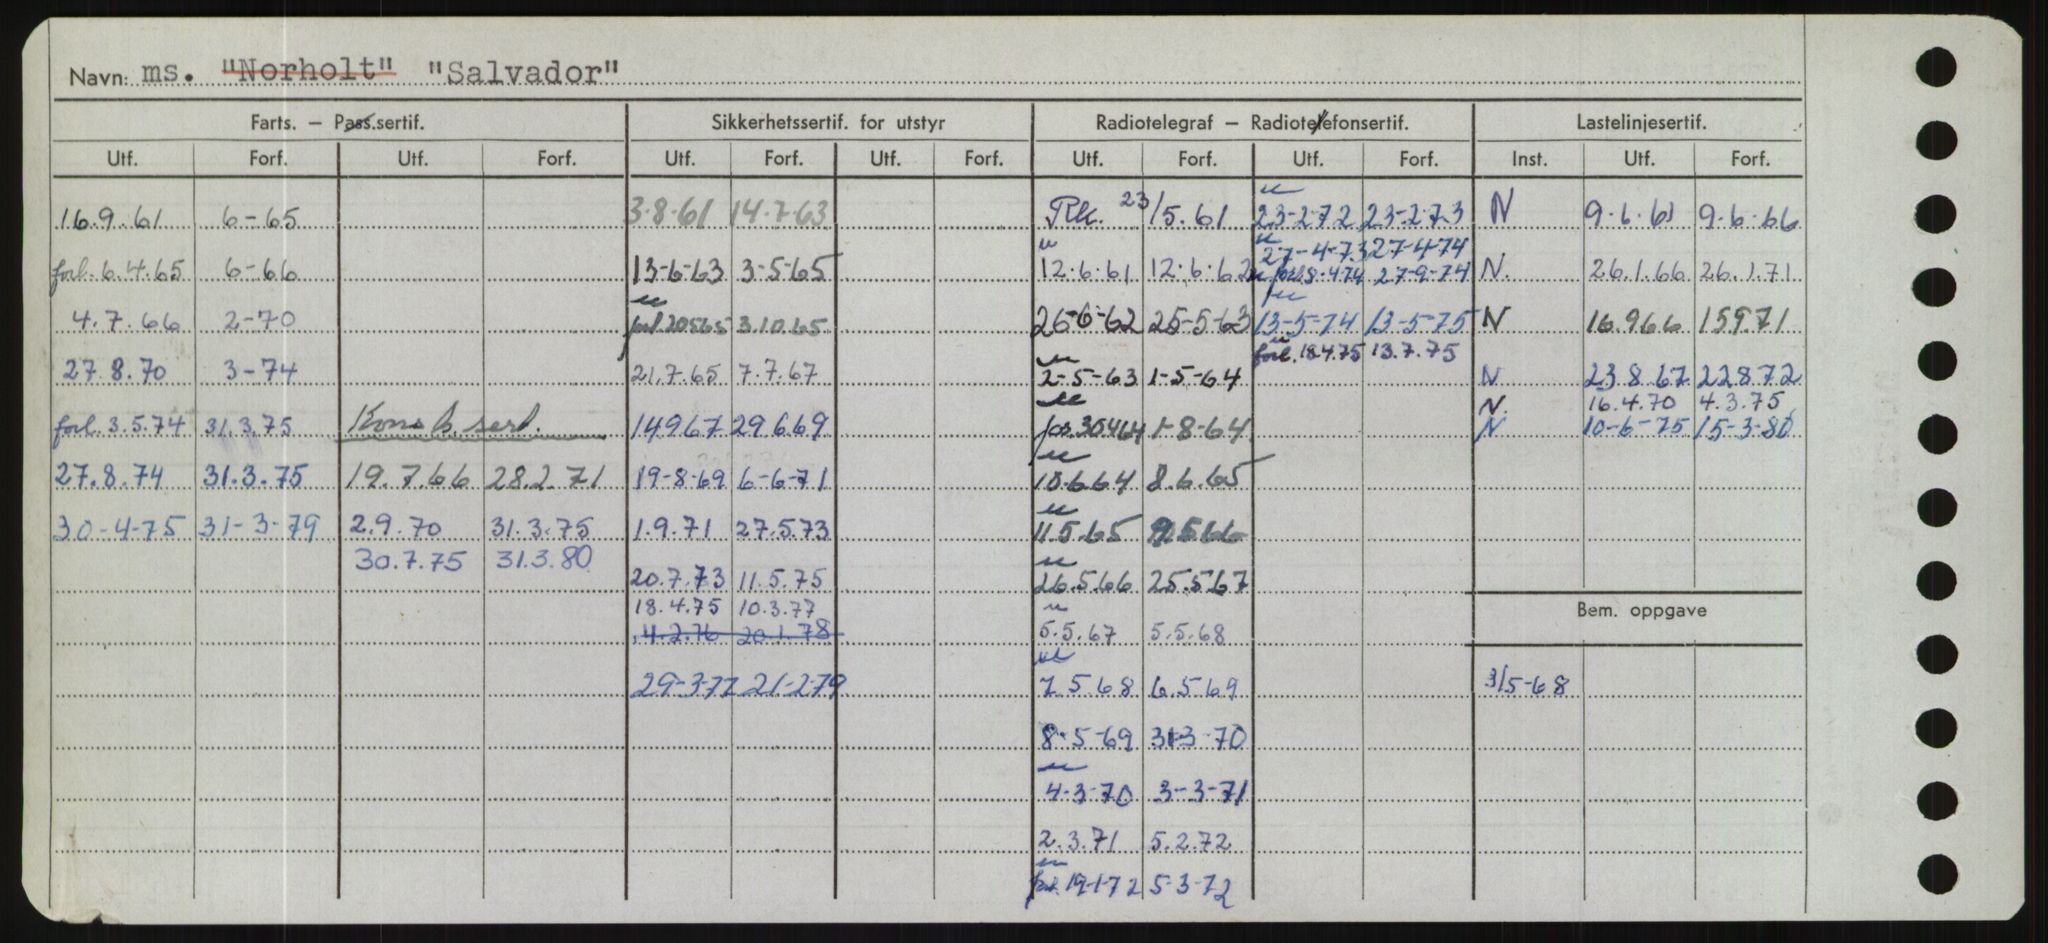 Navn: ms. "Norholt" "Salvador"
Farts. — Pass.sertif. Sikkerhetssertif. for utstyr Radiotelegraf — Radiotelefonsertif. Lastelinjesertif.
Utf. Forf. Utf. Forf. Utf. Forf. Utf. Forf. Utf. Forf. Utf. Forf. Inst. Utf. Forf.
16.9.61 6-65 3-8-61 14.7-63 Rk. 23/5.61 23-2-72 23-2-73 N 9.6.61 9.6.66
27-4-73 27-4-74
forl. 6.4.65 6-66 13-6-63 3-5-65 12.6.61 12.6.62 forl. 8-4-74 27-9-74 N. 26.1.66 26.1.71
4.7.66 2-70 forl. 20565 3.10.65 26-6-62 25-5-63 13-5-74 13-5-75 N 16.966 15971
forl. 18.4.75 13.7.75
27.8.70 3-74 21.7.65 7.7.67 2-5-63 1-5-64 N 23867 22872
N. 16.4.70 4.3.75
forl. 3.5.74 31.3.75 Konst. sert. 14967 29669 for. 30464 1-8-64 N 10-6-75 15-3-80
27.8.74 31.3.75 19.7.66 28.2.71 19-8-69 6-6-71 10.6.64 8.6.65
30-4-75 31-3-79 2.9.70 31.3.75 1.9.71 27.5.73 11.5.65
30.7.75 31.3.80
20.7.73 11.5.75 26.5.66 25.5.67
18.4.75 10.3.77 Bem. oppgave
4.2.76 20.1.78 5.5.67 5.5.68
29-3-77 21-2-79 7.5.68 6.5.69 3/5-68
8-5-69 31-3-70
4-3-70 3-3-71
2.3.71 5.2.72
forl. 19-1-72 5-3-72